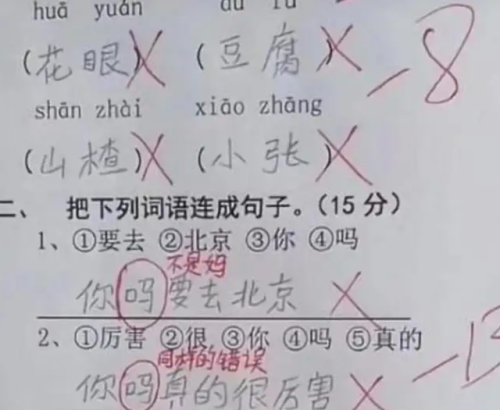 huā yuán dù fǔ
(花眼)× (豆腐)× -8
shān zhài xiāo zhāng
(山楂)× (小张)×
二、 把下列词语连成句子。(15分)
1、①要去 ②北京 ③你 ④吗
不是妈
你吗要去北京 ×
2、①厉害 ②很 ③你 ④吗 ⑤真的
同样的错误
你吗真的很厉害 × -13